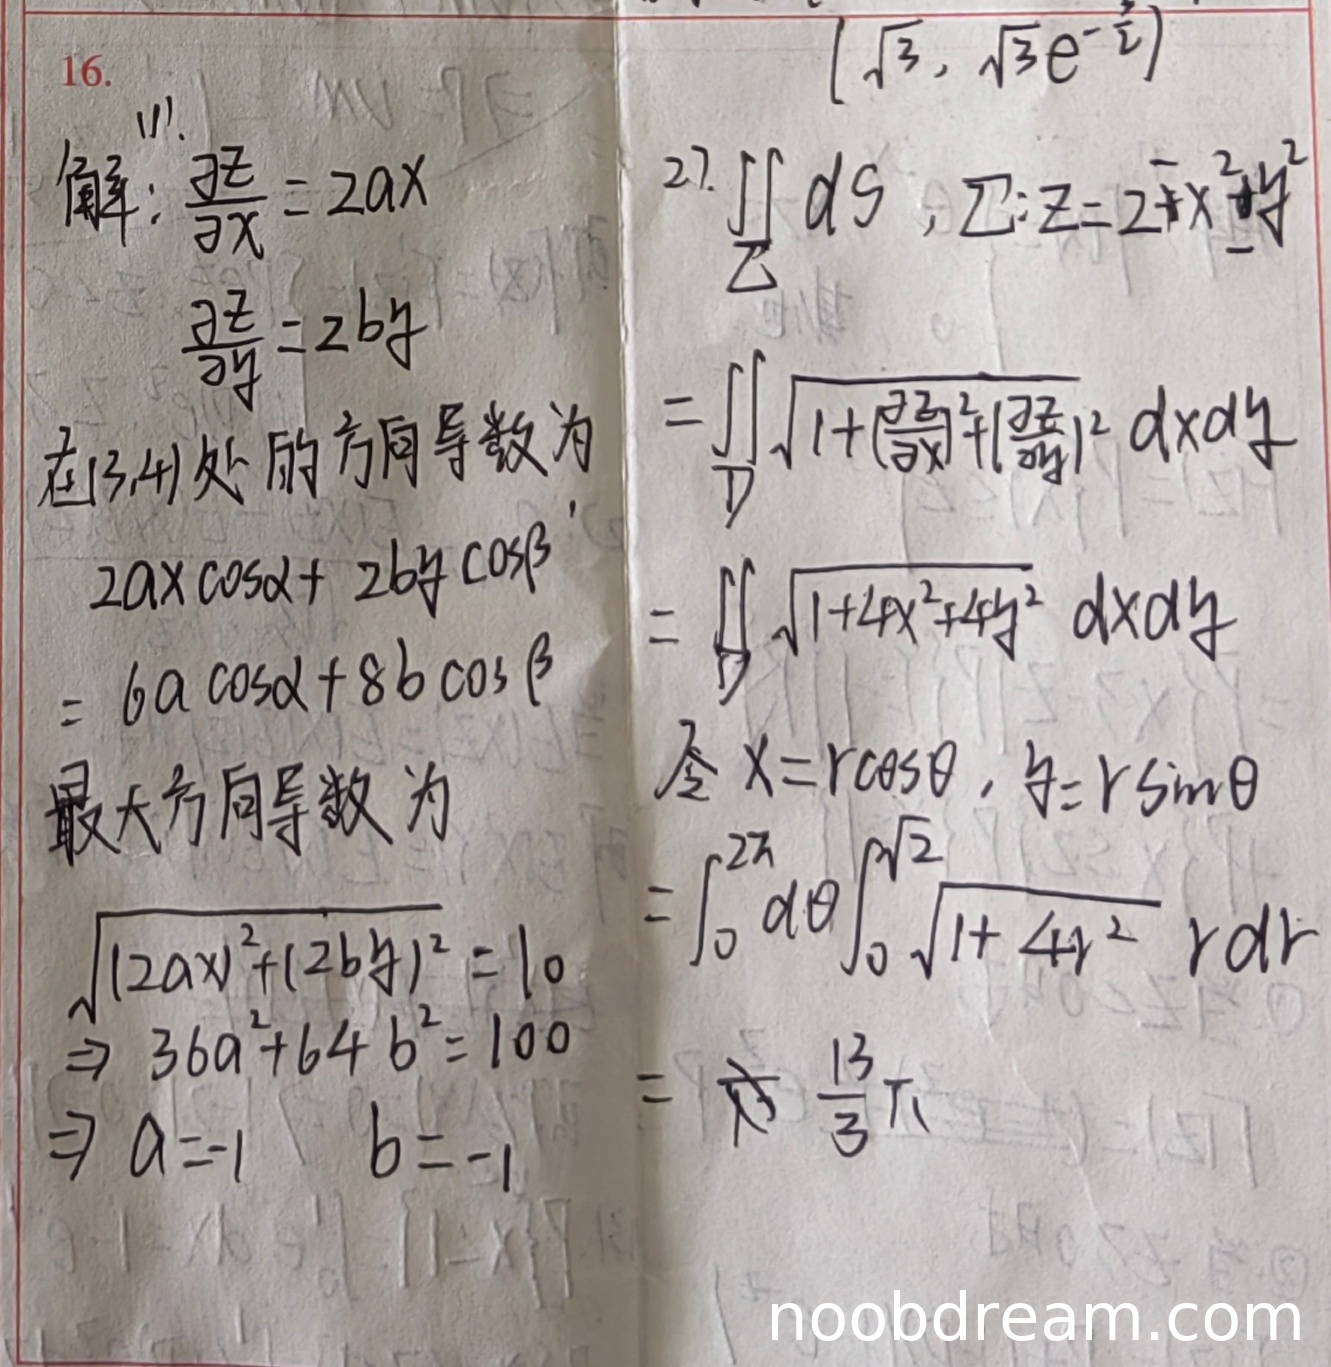 16.
(1).
解: ∂z/∂x = 2ax
∂z/∂y = 2by
在(3,4)处的方向导数为
2ax cosα + 2by cosβ
= 6a cosα + 8b cosβ
最大方向导数为
√((2ax)²+(2by)²) = 10
⇒ 36a²+64b² = 100
⇒ a=-1 b=-1
(√3, √3e^(-3/2))
2). ∬_Σ dS, Σ: z=2-x²-y²
= ∬_D √(1+(∂z/∂x)²+(∂z/∂y)²) dxdy
= ∬_D √(1+4x²+4y²) dxdy
令 x=rcosθ, y=rsinθ
= ∫₀^(2π) dθ ∫₀^(√2) √(1+4r²) rdr
= 13/3 π
noobdream.com